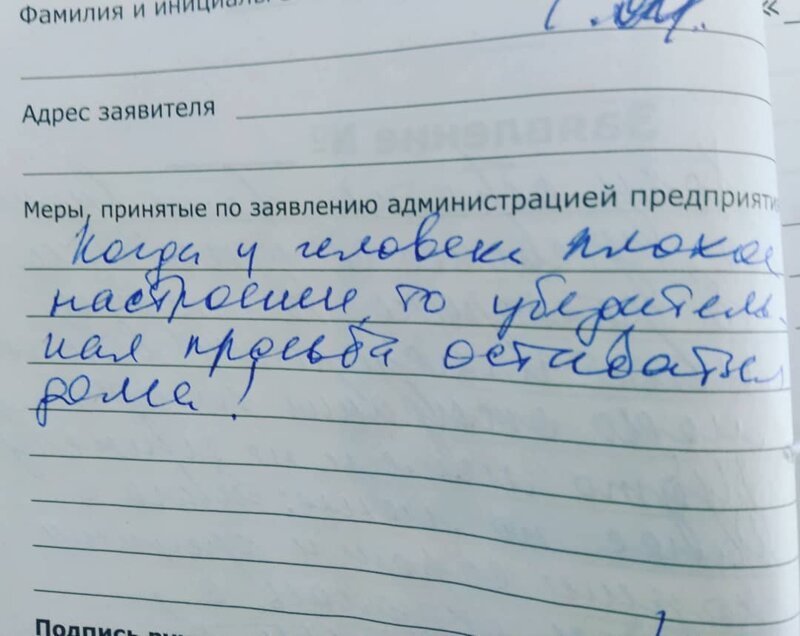 Фамилия и инициалы
«
Адрес заявителя
Меры, принятые по заявлению администрацией предприяти
Когда у человека плохое
настроение, то убедитель-
ная просьба оставаться
дома!
Подпись